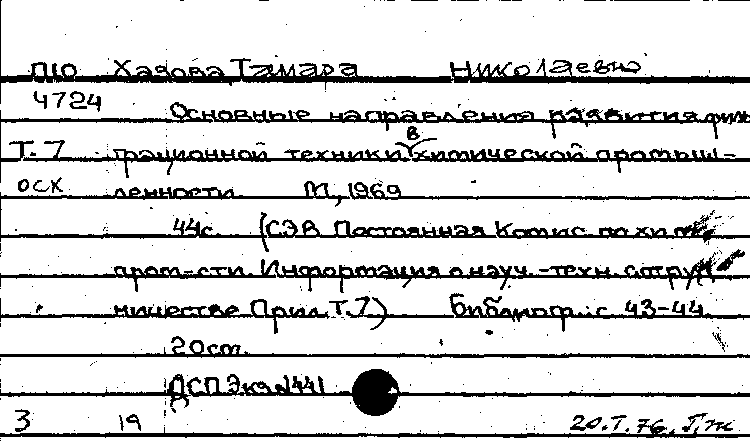 П10 Хазова, Тамара Николаевна
4724 Основные направления развития филь
Т. 7 трационной техники в химической промыш-
ОСК ленности М., 1969
44с. (СЭВ Постоянная Комис. по хим.
пром-сти. Информация о науч.-техн. сотруд
ничестве Прил. Т. 7) Библиогр.: с. 43-44
20 см.
ДСП Экз N441
3 19 20.I.76.